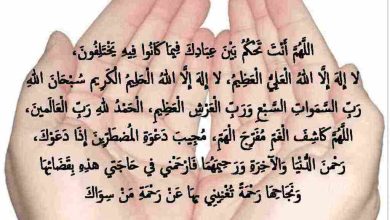 اللَّهُمَّ أَنْتَ تَحْكُمُ بَيْنَ عِبَادِكَ فِيمَا كَانُوا فِيهِ يَخْتَلِفُونَ،
لَا إِلَهَ إِلَّا اللهُ العَلِيُّ العَظِيمُ، لَا إِلَهَ إِلَّا اللهُ الحَلِيمُ الكَرِيمُ سُبْحَانَ اللهِ
رَبِّ السَّمَوَاتِ السَّبْعِ وَرَبِّ العَرْشِ العَظِيمِ، الحَمْدُ للهِ رَبِّ العَالَمِينَ،
اللَّهُمَّ كَاشِفَ الغَمِّ مُفَرِّجَ الهَمِّ، مُجِيبَ دَعْوَةِ المُضطَرِّينَ إِذَا دَعَوْكَ،
رَحْمَنَ الدُّنْيَا وَالآخِرَةِ وَرَحِيمَهُمَا فَارْحَمْنِي فِي حَاجَتِي هَذِهِ بِقَضَائِهَا
وَنَجَاحِهَا رَحْمَةً تُغْنِينِي بِهَا عَنْ رَحْمَةِ مَنْ سِوَاكَ